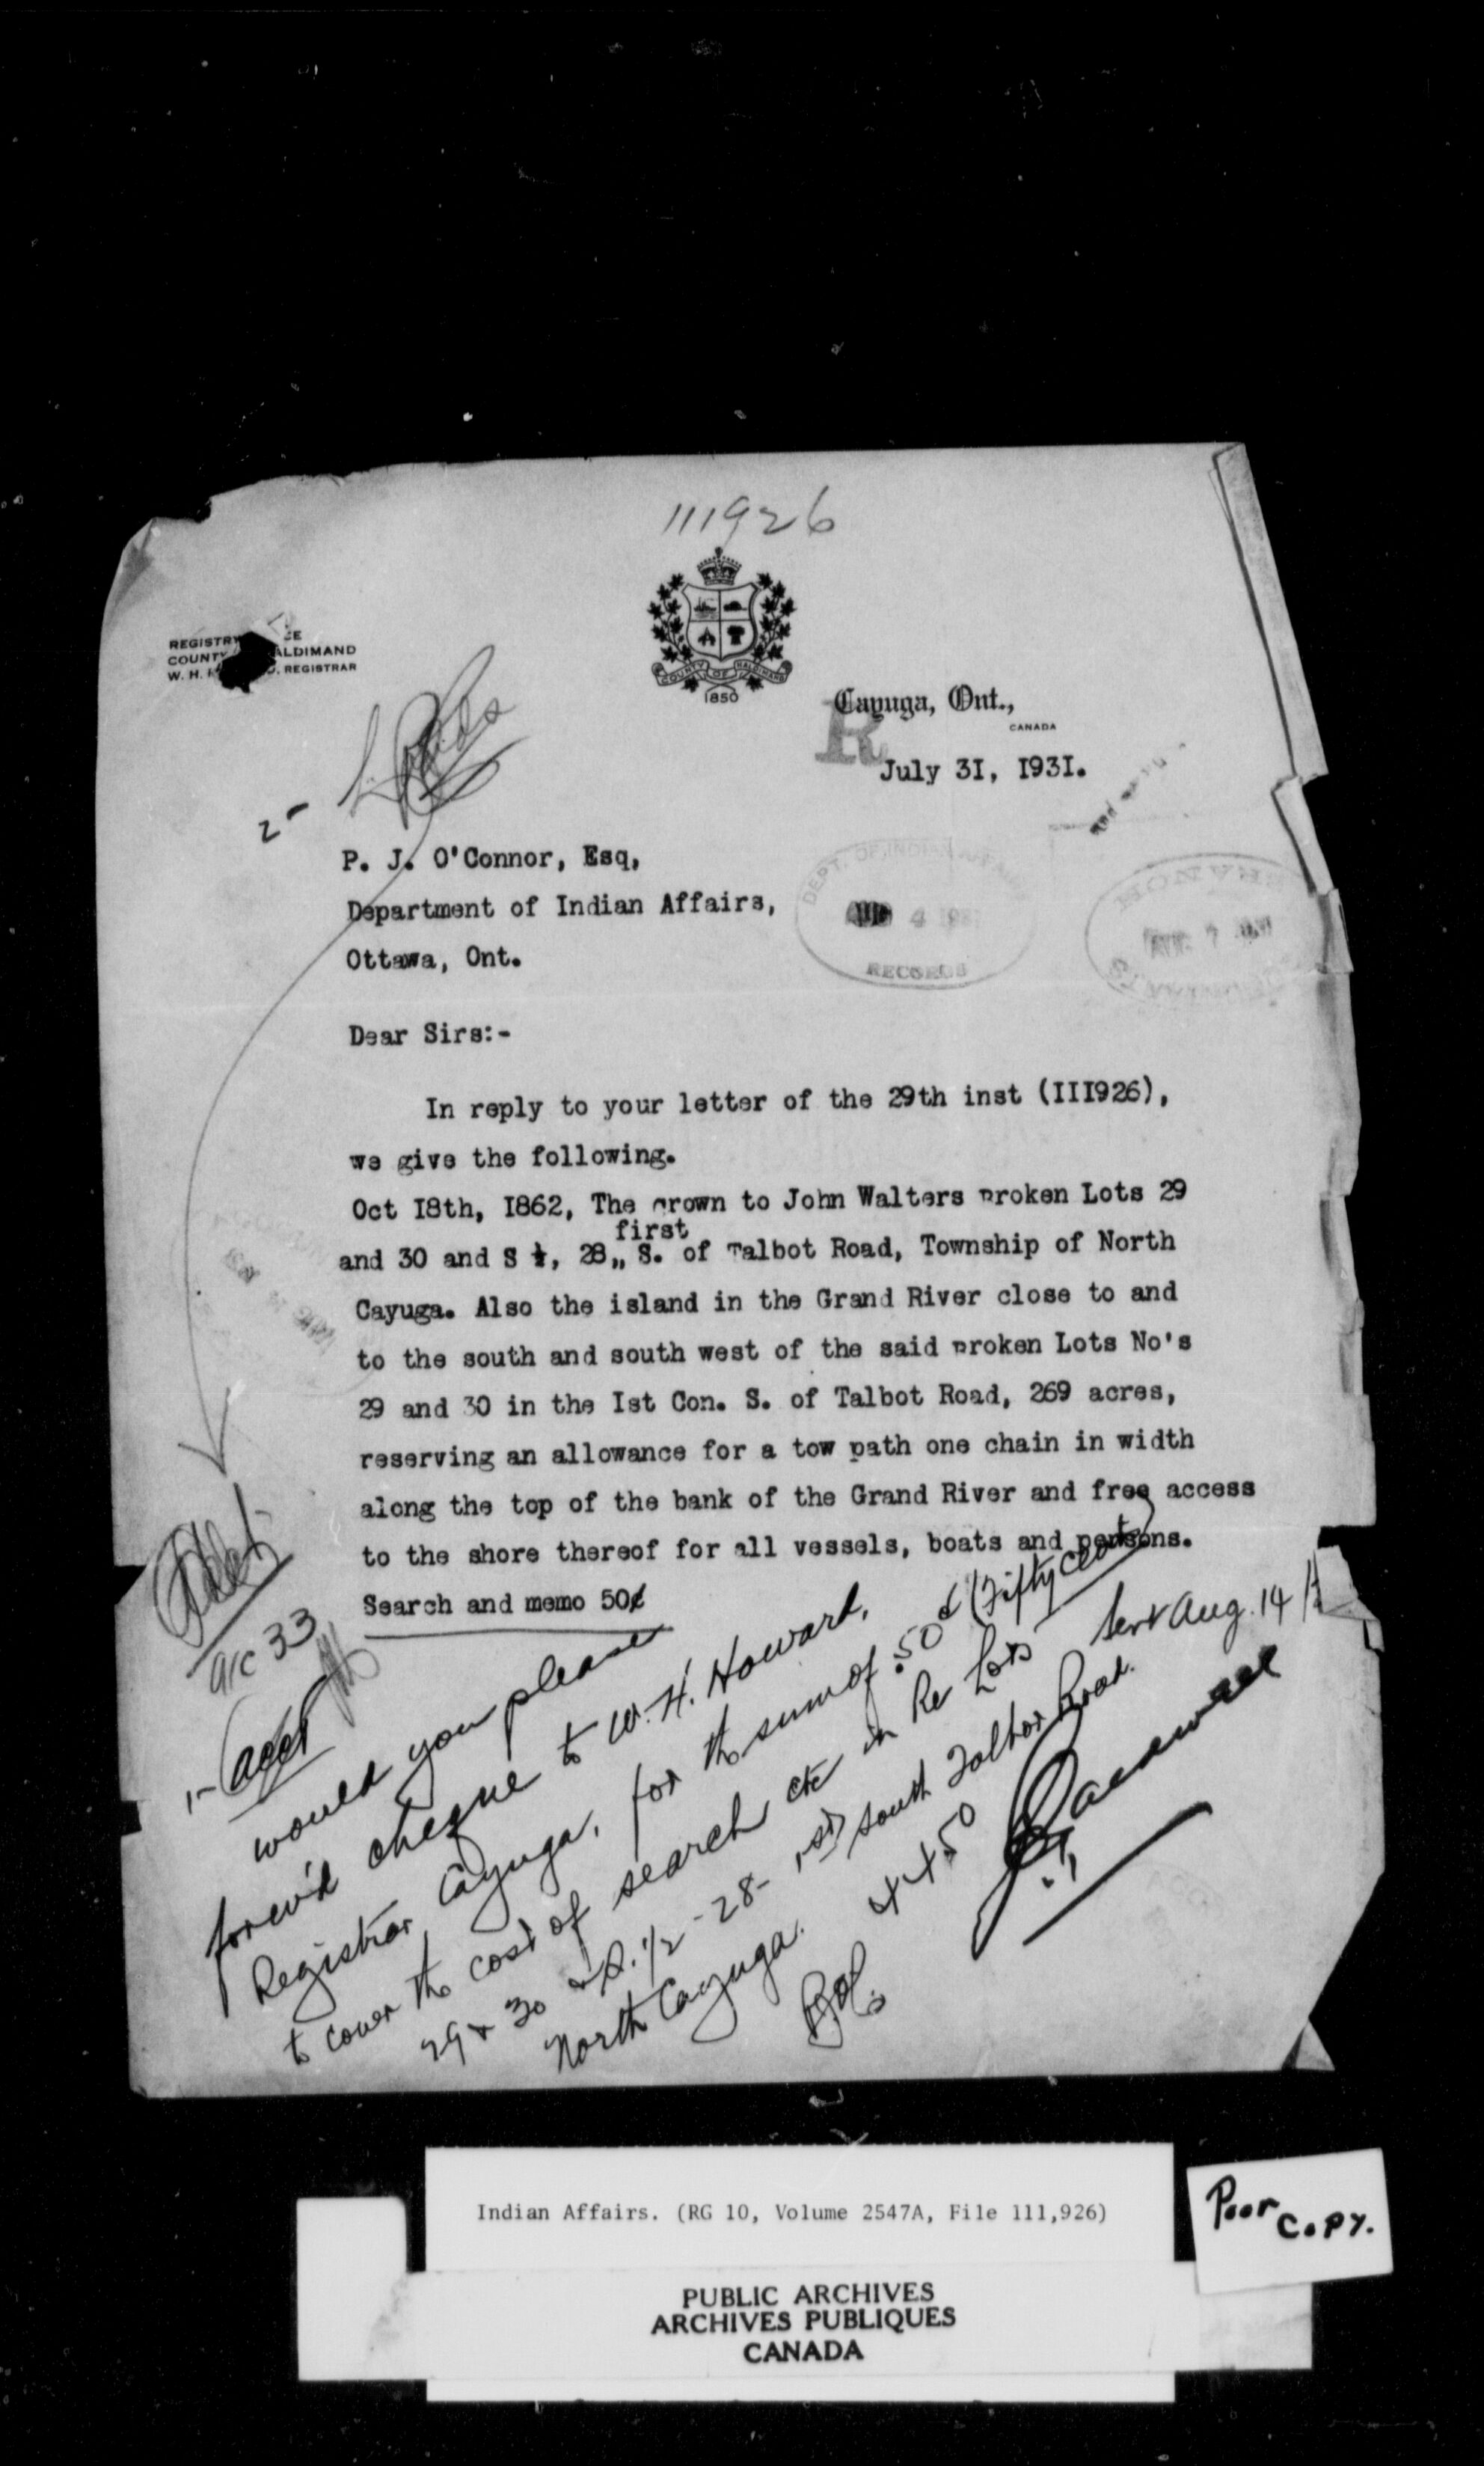 111926
REGISTRY
COUNTY ALDIMAND
W. H. REGISTRAR
COUNTY OF HALDIMAND
1850
Cayuga, Ont.,
CANADA
R
July 3I, I93I.
2 -
P. J. O'Connor, Esq,
Department of Indian Affairs,
Ottawa, Ont.
DEPT. OF INDIAN AFFAIRS
4
RECORDS
AUG 7
Dear Sirs:-
In reply to your letter of the 29th inst (III926),
we give the following.
Oct I8th, I862, The crown to John Walters broken Lots 29
first
and 30 and S ½, 28,, S. of Talbot Road, Township of North
Cayuga. Also the island in the Grand River close to and
to the south and south west of the said broken Lots No's
29 and 30 in the Ist Con. S. of Talbot Road, 269 acres,
reserving an allowance for a tow path one chain in width
along the top of the bank of the Grand River and free access
to the shore thereof for all vessels, boats and persons.
Search and memo 50¢
a/c 33
1- Acct
would you please
forw'd cheque to W. H. Howard,
Registrar Cayuga, for the sum of .50¢ (Fifty cents)
to cover the cost of search etc in Re Lots
29 & 30 & S. 1/2 - 28 - 1st South Talbot Road.
North Cayuga.
Sent Aug. 14
Indian Affairs. (RG 10, Volume 2547A, File 111,926)
Poor
Copy.
PUBLIC ARCHIVES
ARCHIVES PUBLIQUES
CANADA